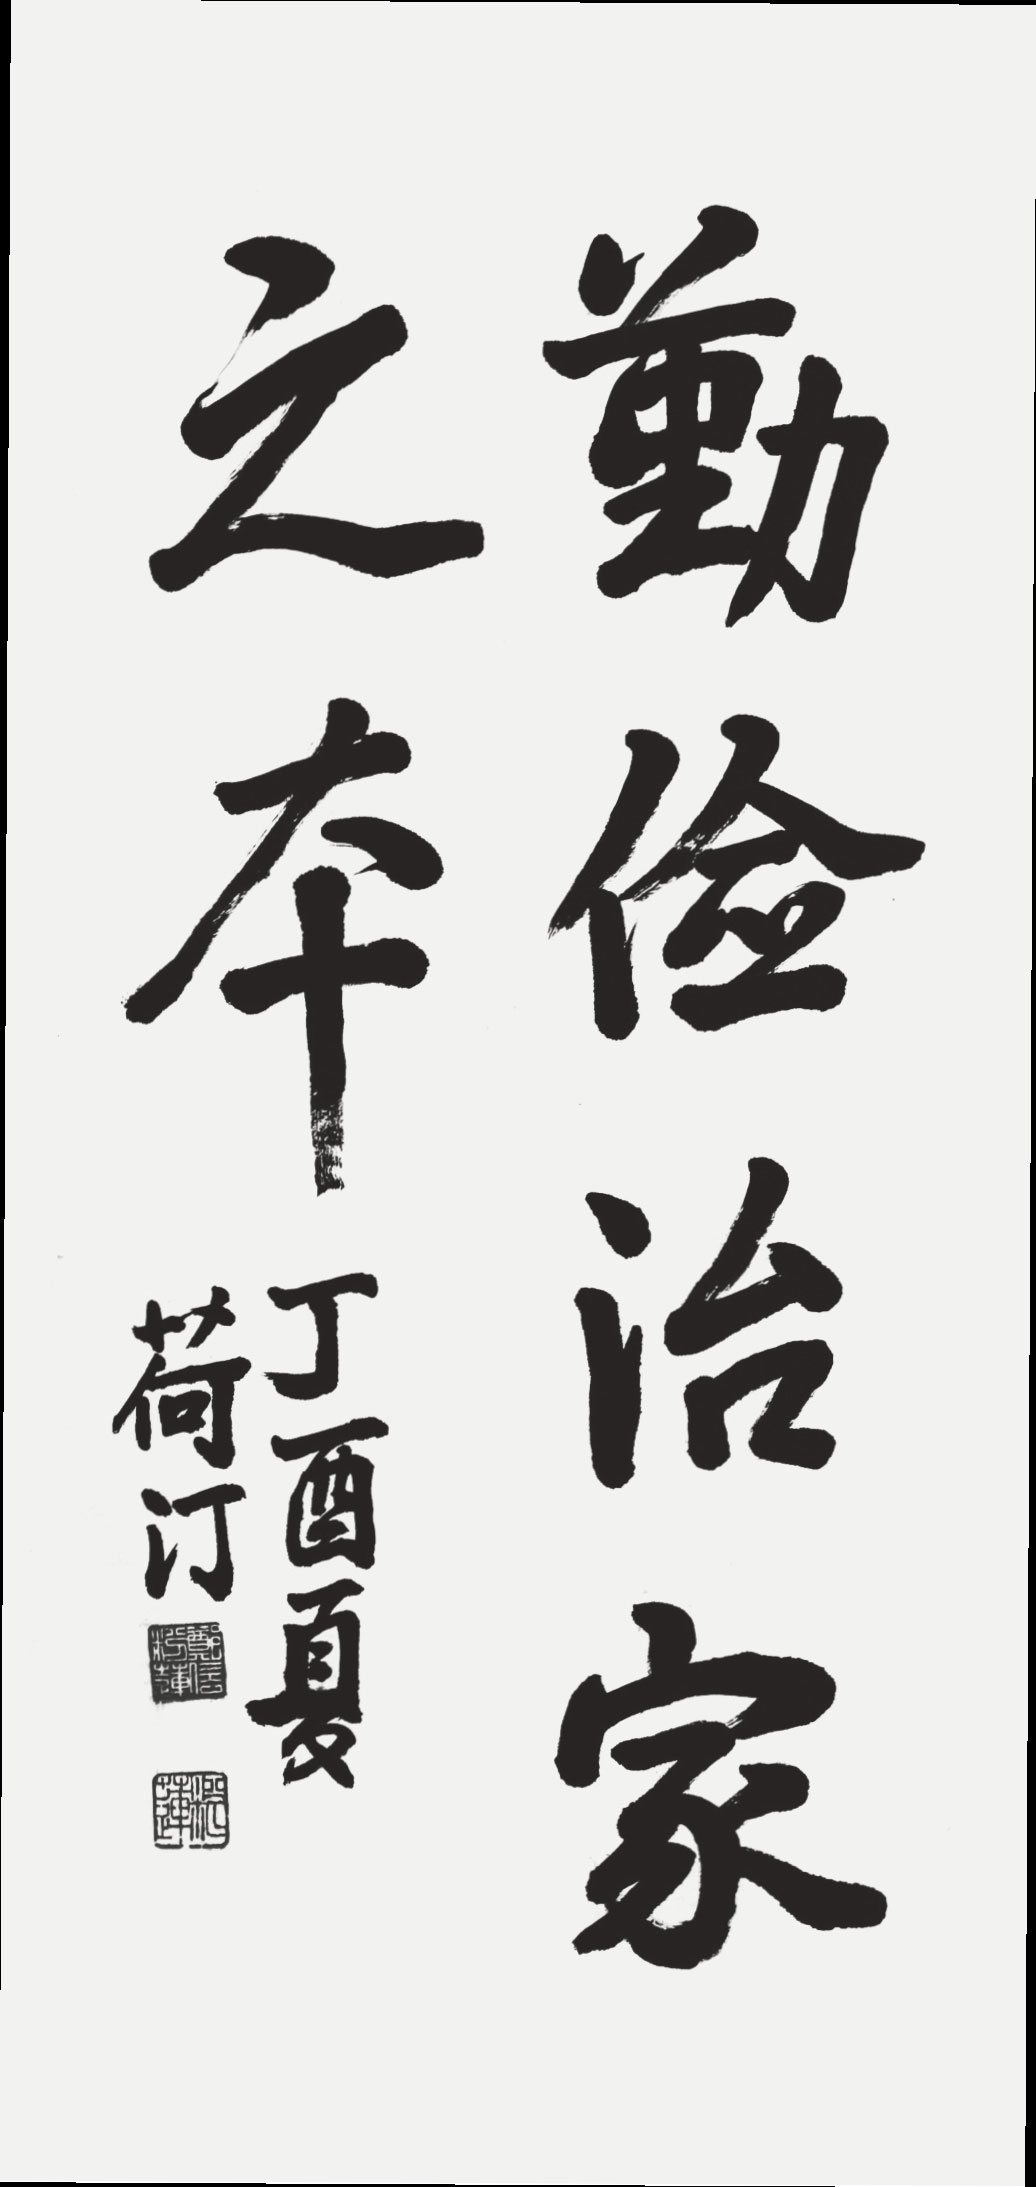 勤儉治家
之本
丁酉夏
荷汀